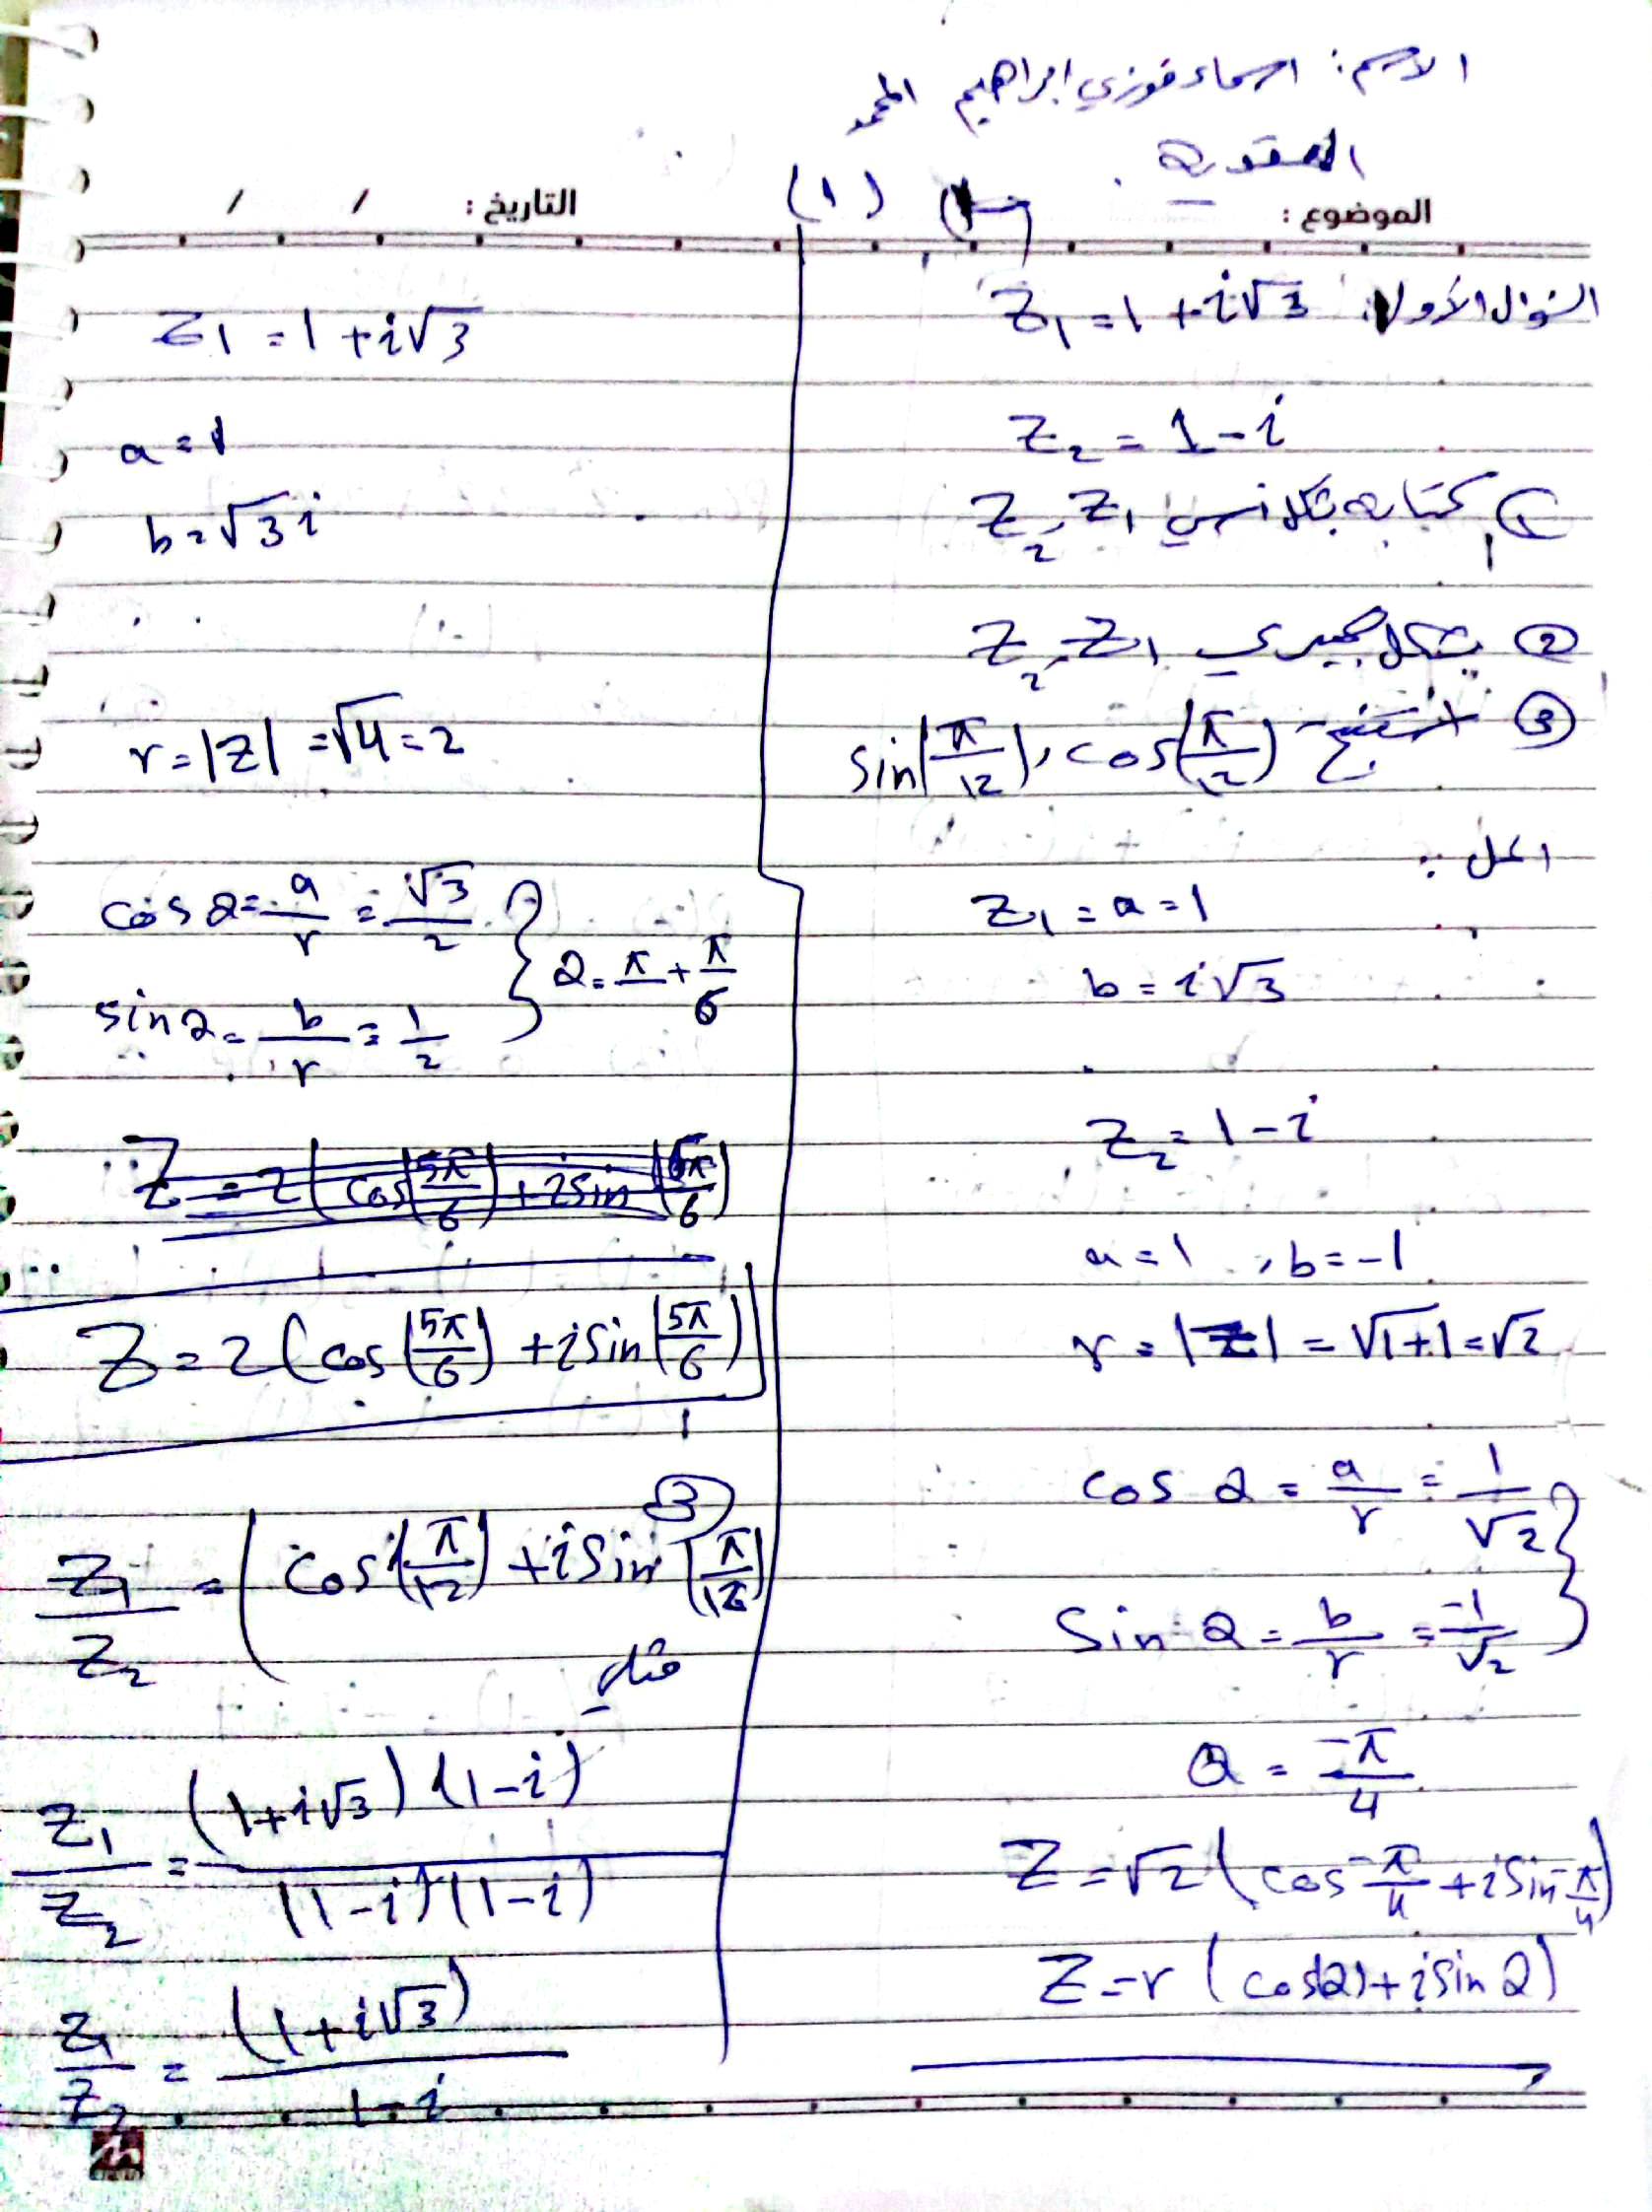 الاسم: اسماء فوزي ابراهيم المحمد
العقدية
الموضوع :
(1)
التاريخ : / /
السؤال الأول: Z₁ = 1 + i√3
Z₂ = 1 - i
① كتابة بشكل اسي Z₁, Z₂
② بشكل جبري Z₁, Z₂
③ استنتج cos(π/12), sin(π/12)
الحل :
Z₁ = a = 1
b = i√3
Z₂ = 1 - i
a = 1 , b = -1
r = |Z| = √1+1 = √2
cos 2 = a/r = 1/√2
sin 2 = b/r = -1/√2
Q = -π/4
Z = √2 (cos -π/4 + i sin -π/4)
Z = r (cos(2) + i sin 2)
Z1 = 1 + i√3
a = 1
b = √3 i
r = |Z| = √4 = 2
cos 2 = a/r = √3/2
sin 2 = b/r = 1/2
2 = π + π/6
Z = 2 (cos(5π/6) + i sin(5π/6)
Z = 2 (cos(5π/6) + i sin(5π/6)
③
Z₁/Z₂ = (cos(π/12) + i sin(π/12)
Z₁/Z₂ = (1+i√3)(1-i)/(1-i)(1-i)
Z₁/Z₂ = (1+i√3)/1-i